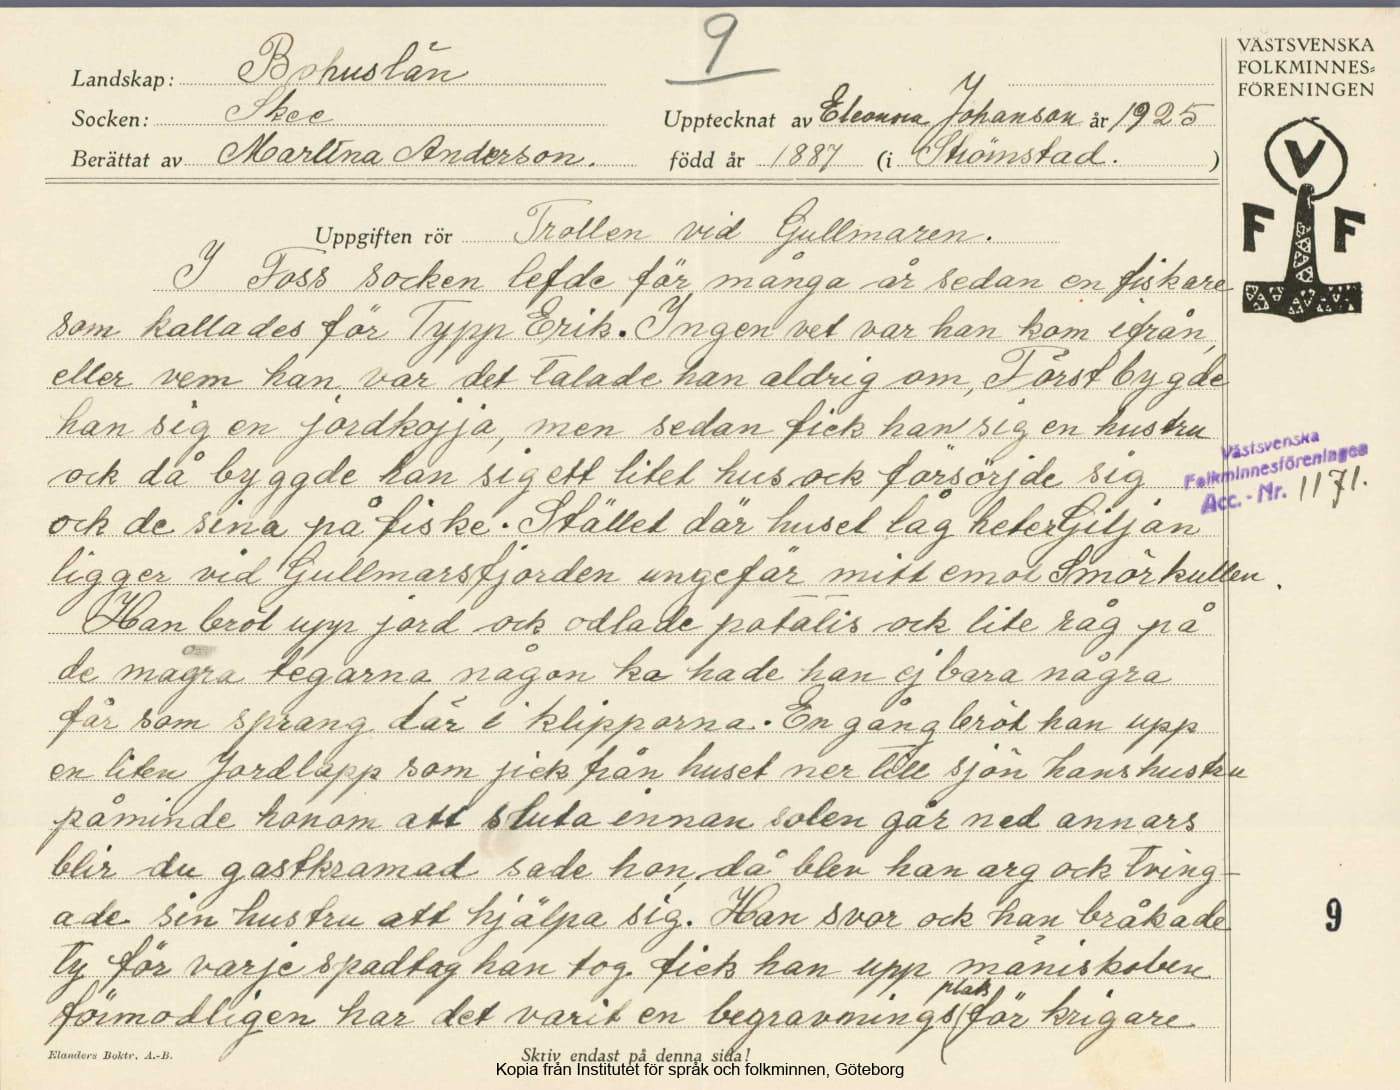 9
Landskap: Bohuslän
Socken: Skee
Berättat av Martina Anderson.
Upptecknat av Eleonora Johanson år 1925
född år 1887 (i Strömstad. )
VÄSTSVENSKA
FOLKMINNES=
FÖRENINGEN
V
F F
Uppgiften rör Trollen vid Gullmaren.
I Foss socken lefde för många år sedan en fiskare
som kallades för Typp Erik. Ingen vet var han kom ifrån,
eller vem han var det talade han aldrig om, Först bygde
han sig en jordkojja, men sedan fick han sig en hustru
ock då byggde han sig ett litet hus ock försörjde sig
ock de sina på fiske. Stället där huset låg heter Giljan
ligger vid Gullmarsfjorden ungefär mitt emot Smörkullen.
Han bröt upp jord ock odlade potatis ock lite råg på
de magra tegarna någon ko hade han ej bara några
får som sprang där i klipporna. En gång bröt han upp
en liten Jordlapp som jick från huset ner till sjön hans hustru
påminde honom att sluta innan solen går ned annars
blir du gastkramad sade hon, då blev han arg ock tving-
ade sin hustru att hjälpa sig. Han svor ock han bråkade
ty för varje spadtag han tog fick han upp mäniskoben
plats
förmodligen har det varit en begravnings för krigare
Västsvenska
Folkminnesföreningen
Acc.-Nr. 1171.
9
Elanders Boktr. A.-B.
Skriv endast på denna sida!
Kopia från Institutet för språk och folkminnen, Göteborg